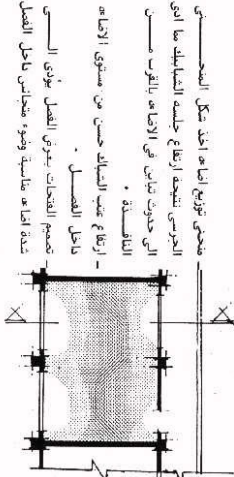 منحنى توزيع اضاءه اخذ شكل المنحــــنى
الجرسى نتيجه ارتفاع جلسه الشبابيك مما ادى
الى حدوث تباين فى الاضاءه بالقرب مـــــن
النافـــذة ٠
ـ ارتفاع عتب الشباك حسن من مستوى الاضاءه
داخل الفصـــل ٠
ـ تصميم الفتحات بعرض الفصل يؤدى الـــــى
شدة اضاءه مناسبة وضوء متجانس داخل الفصل